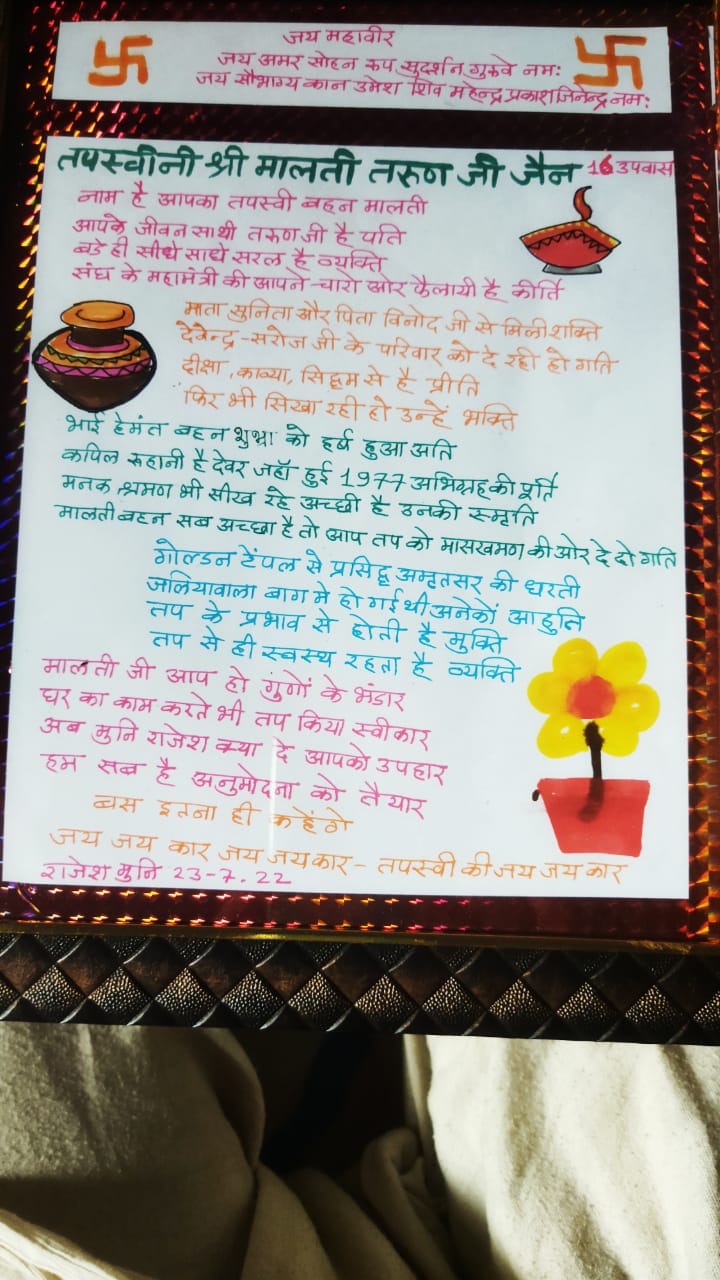 जय महावीर
जय अमर सोहन रूप सुदर्शन गुरुवे नमः
जय सौभाग्य कान उमेश शिव महेन्द्र प्रकाश जिनेन्द्र नमः
तपस्वीनी श्री मालती तरुण जी जैन 16 उपवास
नाम है आपका तपस्वी बहन मालती
आपके जीवन साथी तरुण जी है पति
बडे ही सीधे साधे सरल है व्यक्ति
संघ के महामंत्री की आपने चारो ओर फैलायी है कीर्ति
माता सुनिता और पिता विनोद जी से मिली शक्ति
देवेन्द्र-सरोज जी के परिवार को दे रही हो गति
दीक्षा, काव्या, सिद्धम से है प्रीति
फिर भी सिखा रही हो उन्हें भक्ति
भाई हेमंत बहन शुभ्रा को हर्ष हुआ अति
कपिल रूहानी है देवर जहाँ हुई 1977 अभिग्रह की पूर्ति
मनक श्रमण भी सीख रहे अच्छी है उनकी स्मृति
मालती बहन सब अच्छा है तो आप तप को मासखमण की ओर दे दो गति
गोल्डन टेंपल से प्रसिद्ध अमृतसर की धरती
जलियावाला बाग मे हो गई थी अनेकों आहुति
तप के प्रभाव से होती है मुक्ति
तप से ही स्वस्थ रहता है व्यक्ति
मालती जी आप हो गुणों के भंडार
घर का काम करते भी तप किया स्वीकार
अब मुनि राजेश क्या दे आपको उपहार
हम सब है अनुमोदना को तैयार
बस इतना ही कहेंगे
जय जय कार जय जय कार - तपस्वी की जय जय कार
राजेश मुनि 23-7.22